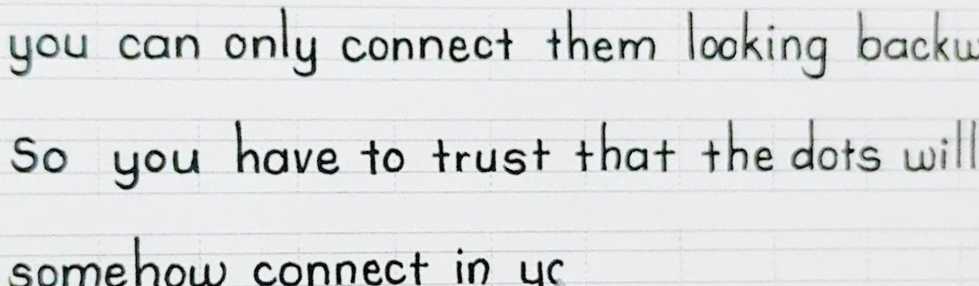 you can only connect them looking
So you have to trust that the dots will
somehow connect in